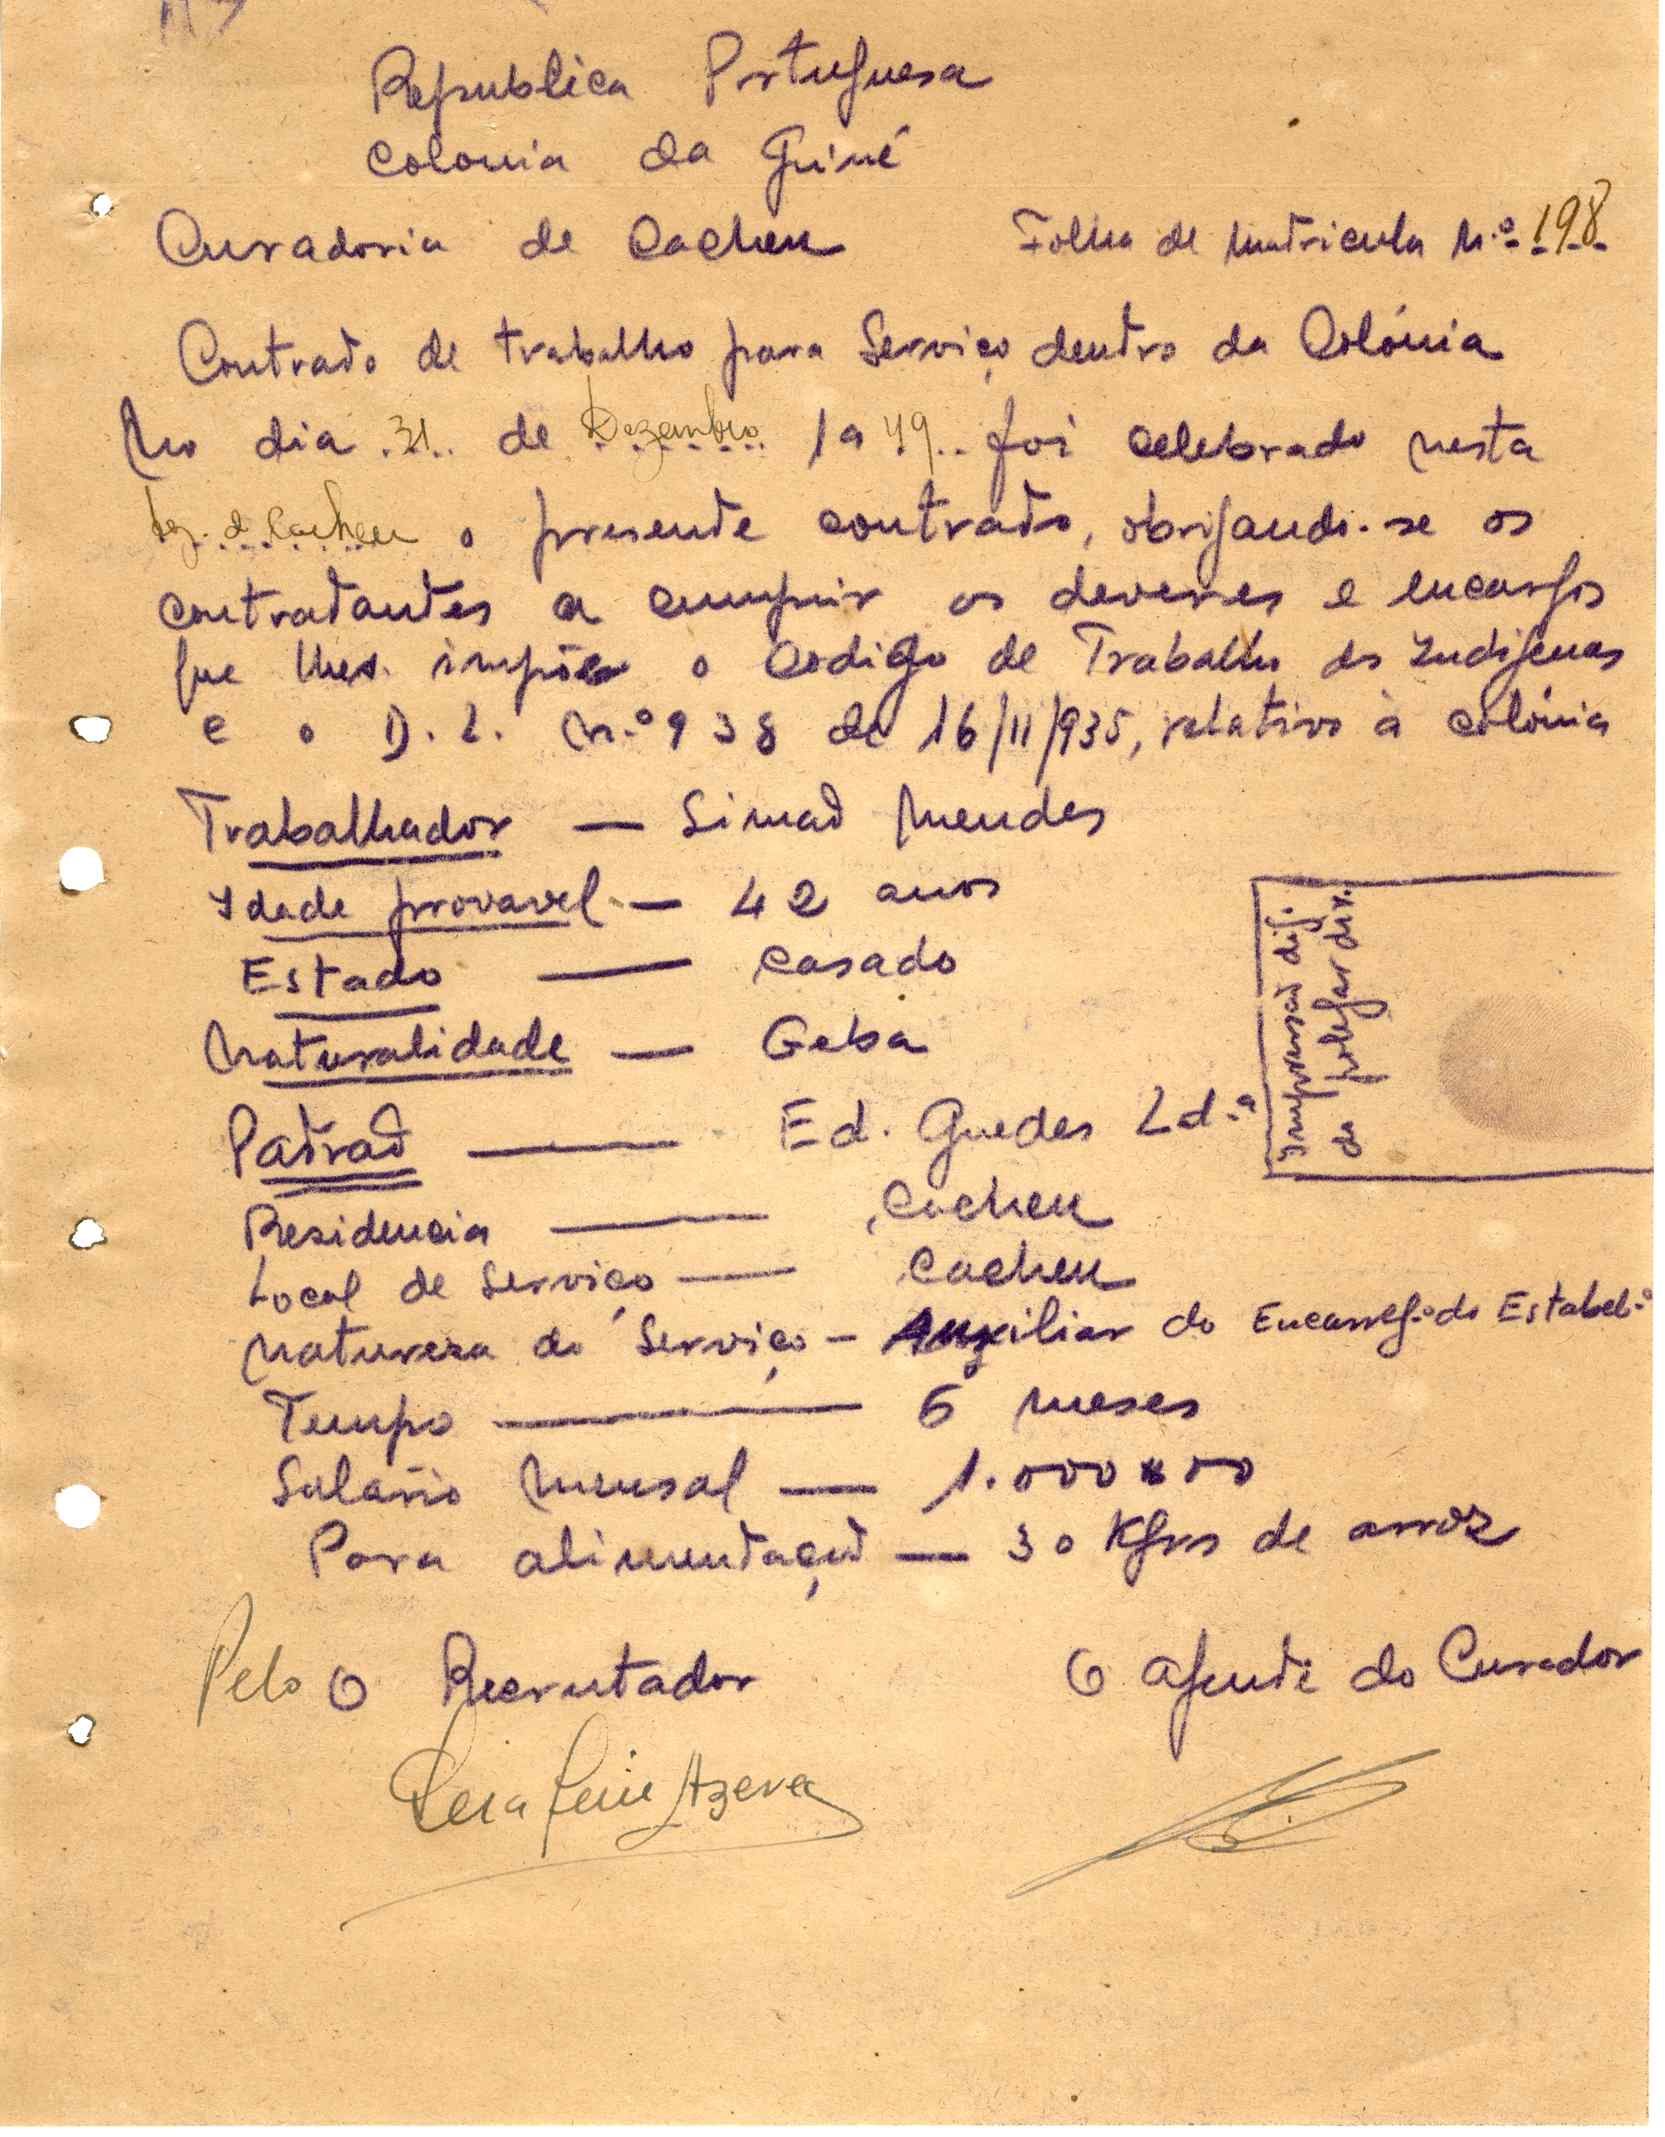 Republica Portuguesa
Colonia da Guiné
Curadoria de Cacheu Folha de Matricula N.º 198
Contrato de trabalho para Serviço dentro da Colónia
No dia 31 de Dezembro 1949 foi celebrado nesta
de Cacheu o presente contrato, obrigando-se os
contratantes a cumprir os deveres e encargos
que lhes impõe o Codigo de Trabalho dos Indigenas
e o D. L. N.º 938 de 16/11/935, relativo à colónia
Trabalhador — Simaõ Mendes
Idade provavel — 42 anos
Estado — Casado
Naturalidade — Geba
Patraõ — Ed. Guedes Ld.ª
Impressaõ dig.
do polegar dir.
Residencia — Cacheu
Local de Serviço — Cacheu
Natureza do Serviço — Auxiliar do Encarreg.º do Estabel.º
Tempo — 6 meses
Salario Mensal — 1.000$00
Para alimentaçaõ — 30 Kgrs de arroz
Pelo O Recrutador O Agente do Curador